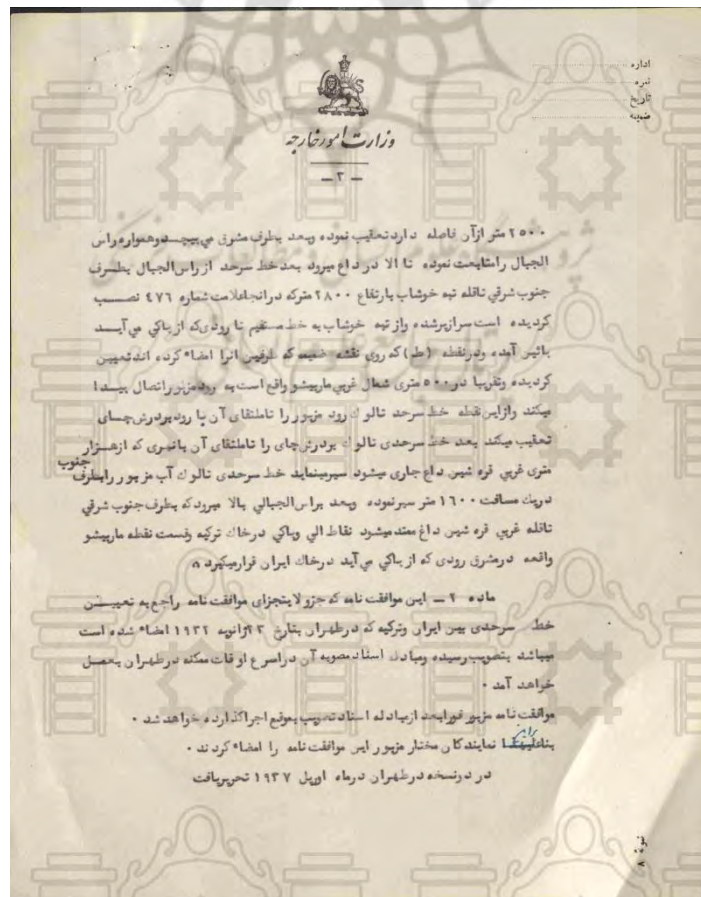 اداره
نمره
تاریخ
ضمیمه
وزارت امور خارجه
— ۲ —
۲۵۰۰ متر از آن فاصله دارد تعقیب نموده وبعد بطرف مشرق می پیچد وهمواره راس
الجبال را متابعت نموده تا الا در داغ میرود بعد خط سرحد از راس الجبال بطرف
جنوب شرقی تاقله تپه خوشاب بارتفاع ۲۸۰۰ متر که در انجا علامت شماره ۴۷۶ نصب
گردیده است سرازیر شده واز تپه خوشاب به خط مستقیم تا رودی که از یاکی می آید
پائین آمده ودر نقطه (ط) که روی نقشه ضمیمه که طرفین انرا امضاء کرده اند تعیین
گردیده وتقریبا در ۵۰۰ متری شمال غربی ماربیشو واقع است به رود مزبور اتصال پیدا
میکند وازاین نقطه خط سرحد تالوك رود مزبور را تاملتقای آن با رود بردرش چای
تعقیب میکند بعد خط سرحدی تالوك بردرش چای را تاملتقای آن بانهری که از هزار
متری غربی قره شین داغ جاری میشود سیر مینماید خط سرحدی تالوك آب مزبور را بطرف جنوب
دریك مسافت ۱۶۰۰ متر سیر نموده وبعد براس الجبالی بالا میرود که بطرف جنوب شرقی
تاقله غربی قره شین داغ ممتد میشود نقاط الی ویاکی در خاك ترکیه وقسمت نقطه ماربیشو
واقعه در مشرق رودی که از یاکی می آید در خاك ایران قرار میگیرد »
ماده ۲ — این موافقت نامه که جزو لایتجزای موافقت نامه راجع به تعیین
خط سرحدی بین ایران وترکیه که در طهران بتاریخ ۲۳ ژانویه ۱۹۳۲ امضاء شده است
میباشد بتصویب رسیده ومبادله اسناد مصوبه آن در اسرع اوقات ممکنه در طهران بعمل
خواهد آمد .
موافقت نامه مزبور فورا بعد از مبادله اسناد تصویب بموقع اجرا گذارده خواهد شد .
نمایندگان مختار مزبور این موافقت نامه را امضاء کردند .
در دو نسخه در طهران در ماه اوریل ۱۹۳۷ تحریر یافت